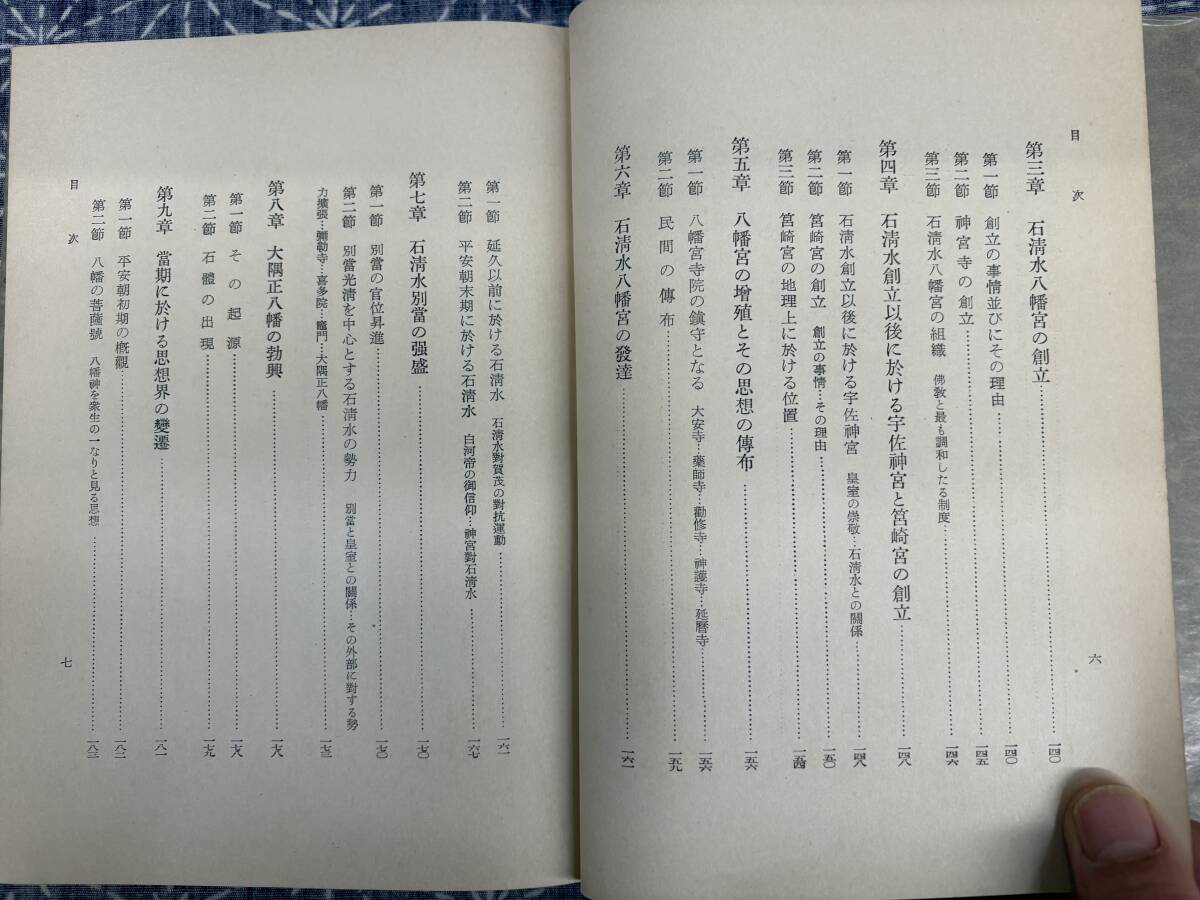 目次
第三章 石清水八幡宮の創立……一四〇
第一節 創立の事情並びにその理由……一四〇
第二節 神宮寺の創立……一四五
第三節 石清水八幡宮の組織 佛教と最も調和したる制度……一四六
第四章 石清水創立以後に於ける宇佐神宮と筥崎宮の創立……一四八
第一節 石清水創立以後に於ける宇佐神宮 皇室の崇敬…石清水との關係……一四八
第二節 筥崎宮の創立 創立の事情…その理由……一五〇
第三節 筥崎宮の地理上に於ける位置……一五四
第五章 八幡宮の增殖とその思想の傳布……一五六
第一節 八幡宮寺院の鎭守となる 大安寺…藥師寺…勸修寺…神護寺…延曆寺……一五六
第二節 民間の傳布……一五九
第六章 石清水八幡宮の發達……一六一
六
第一節 延久以前に於ける石清水 石清水對賀茂の對抗運動……一六一
第二節 平安朝末期に於ける石清水 白河帝の御信仰…神宮對石清水……一六七
第七章 石清水別當の强盛……一七〇
第一節 別當の官位昇進……一七〇
第二節 別當光淸を中心とする石清水の勢力 別當と皇室との關係…その外部に對する勢
力擴張…彌勒寺…喜多院…竈門…大隅正八幡……一七三
第八章 大隅正八幡の勃興……一七八
第一節 その起源……一七八
第二節 石體の出現……一七九
第九章 當期に於ける思想界の變遷……一八一
第一節 平安朝初期の槪觀……一八二
第二節 八幡の菩薩號 八幡神を衆生の一なりと見る思想……一八三
目次
七